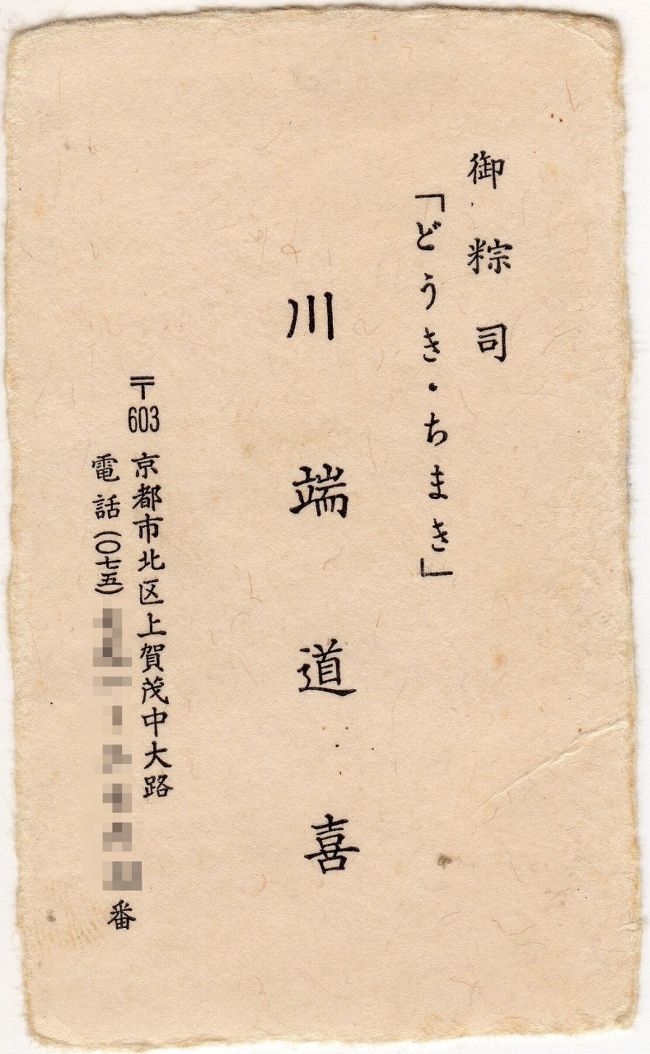 御粽司
「どうき・ちまき」
川端道喜
〒603 京都市北区上賀茂中大路
電話(〇七五)番